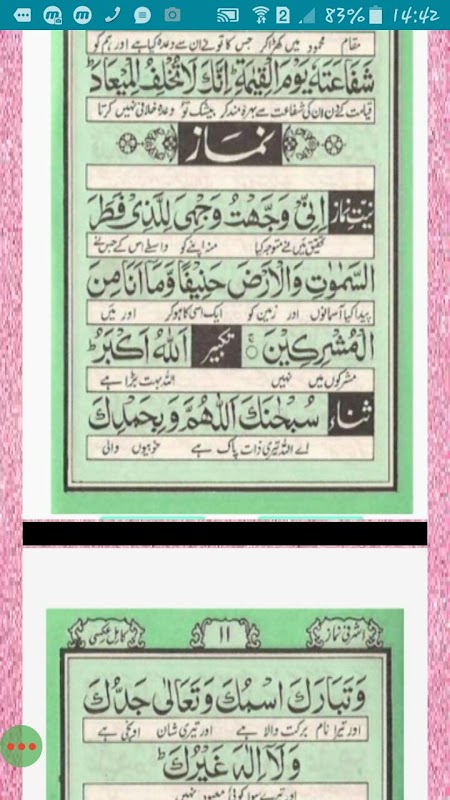 2 83% 14:42
مقام محمود میں کھڑا کر جس کا تو نے ان سے وعدہ کیا ہے اور ہم کو
شَفَاعَتَهٗ يَوْمَ الْقِيٰمَةِ ؕ اِنَّكَ لَا تُخْلِفُ الْمِيْعَادَ ؕ
قیامت کے دن ان کی شفاعت سے بہرہ مند کر بیشک تو وعدہ خلافی نہیں کرتا
نماز
نیت نماز اِنِّيْ وَجَّهْتُ وَجْهِيَ لِلَّذِيْ فَطَرَ
تحقیق میں نے متوجہ کیا منہ اپنے کو واسطے اس کے جس نے
السَّمٰوٰتِ وَالْاَرْضَ حَنِيْفًا وَّمَا اَنَا مِنَ
پیدا کیا آسمانوں اور زمین کو ایک اسی کا ہو کر اور میں
الْمُشْرِكِيْنَ ۝ تکبیر اَللّٰهُ اَكْبَرُ ؕ
مشرکوں میں نہیں اللہ بہت بڑا ہے
ثناء سُبْحٰنَكَ اللّٰهُمَّ وَبِحَمْدِكَ
اے اللہ تیری ذات پاک ہے خوبیوں والی
اشرفی نماز ۱۱ کامل عکسی
وَتَبَارَكَ اسْمُكَ وَتَعَالٰى جَدُّكَ
اور تیرا نام برکت والا ہے اور تیری شان اونچی ہے
وَلَآ اِلٰهَ غَيْرُكَ ؕ
اور تیرے سوا کوئی معبود نہیں